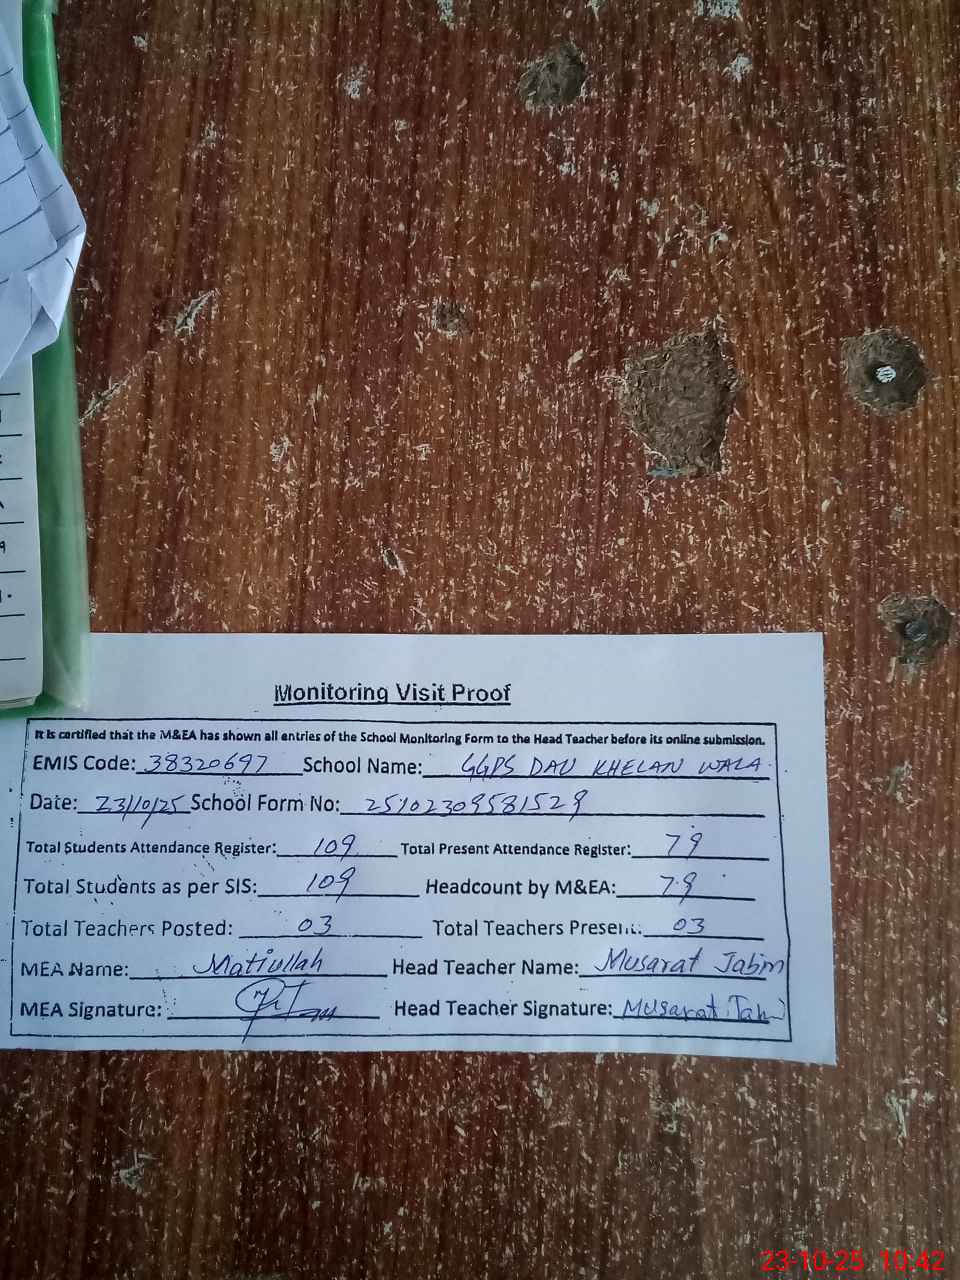 Monitoring Visit Proof
It is certified that the M&EA has shown all entries of the School Monitoring Form to the Head Teacher before its online submission.
EMIS Code: 38320697 School Name: GGPS DAU KHELAN WALA
Date: 23/10/25 School Form No: 25102309581529
Total Students Attendance Register: 109 Total Present Attendance Register: 79
Total Students as per SIS: 109 Headcount by M&EA: 79
Total Teachers Posted: 03 Total Teachers Present: 03
MEA Name: Matiullah Head Teacher Name: Musarat Jabin
MEA Signature: Head Teacher Signature: Musarat
23-10-25 10:42